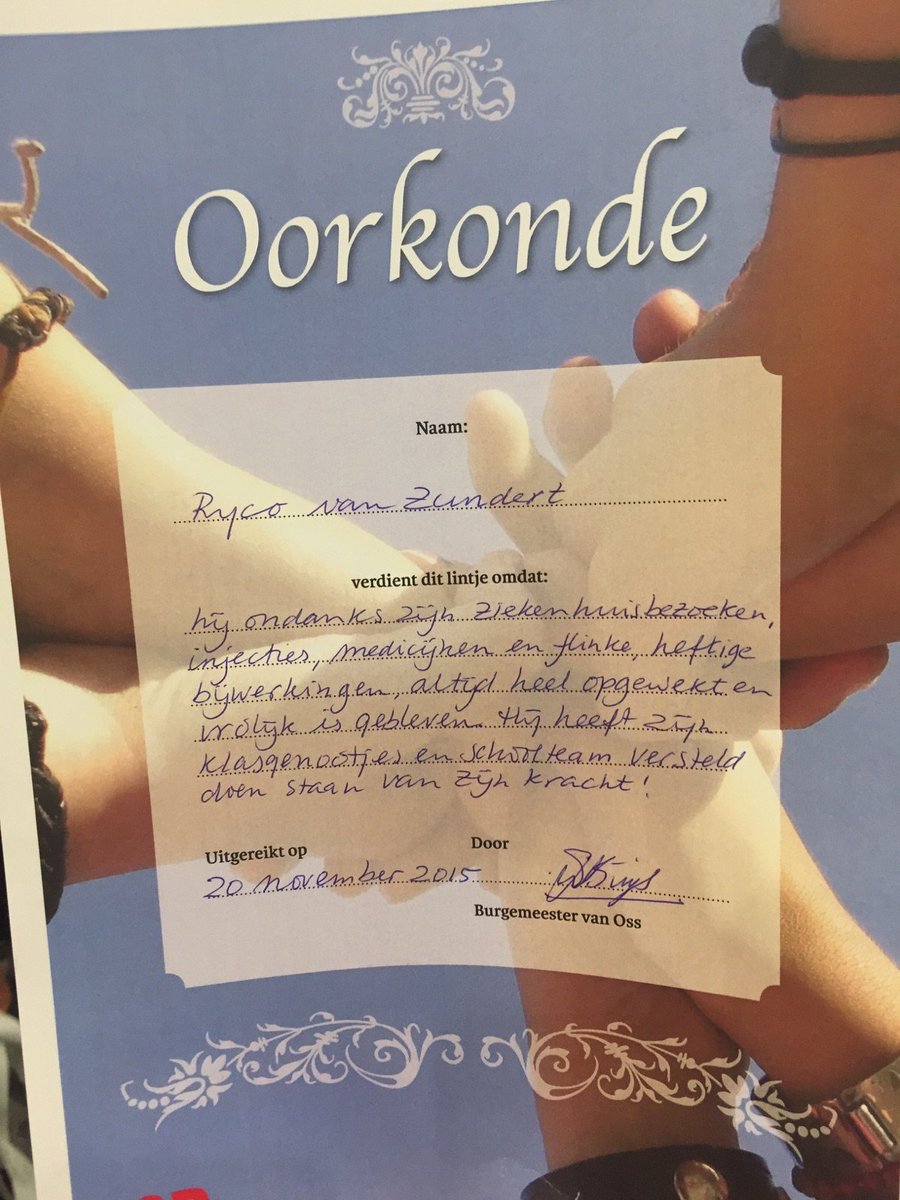 Oorkonde
Naam:
Ryco van Zundert
verdient dit lintje omdat:
hij ondanks zijn ziekenhuisbezoeken,
injecties, medicijnen en flinke, heftige
bijwerkingen, altijd heel opgewekt en
vrolijk is gebleven. Hij heeft zijn
klasgenootjes en schoolteam versteld
doen staan van zijn kracht!
Uitgereikt op Door
20 november 2015
Burgemeester van Oss